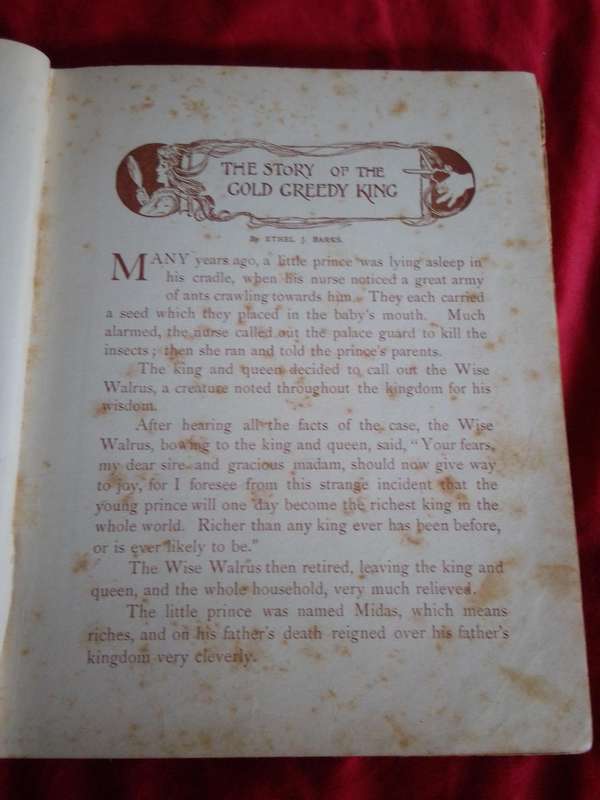 THE STORY OF THE
GOLD GREEDY KING
By ETHEL J. BARKS.
MANY years ago, a little prince was lying asleep in
his cradle, when his nurse noticed a great army
of ants crawling towards him. They each carried
a seed which they placed in the baby's mouth. Much
alarmed, the nurse called out the palace guard to kill the
insects; then she ran and told the prince's parents.
The king and queen decided to call out the Wise
Walrus, a creature noted throughout the kingdom for his
wisdom.
After hearing all the facts of the case, the Wise
Walrus, bowing to the king and queen, said, "Your fears,
my dear sire and gracious madam, should now give way
to joy, for I foresee from this strange incident that the
young prince will one day become the richest king in the
whole world. Richer than any king ever has been before,
or is ever likely to be."
The Wise Walrus then retired, leaving the king and
queen, and the whole household, very much relieved.
The little prince was named Midas, which means
riches, and on his father's death reigned over his father's
kingdom very cleverly.